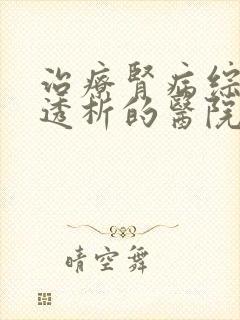 治療腎病綜
透析的醫院
晴空舞